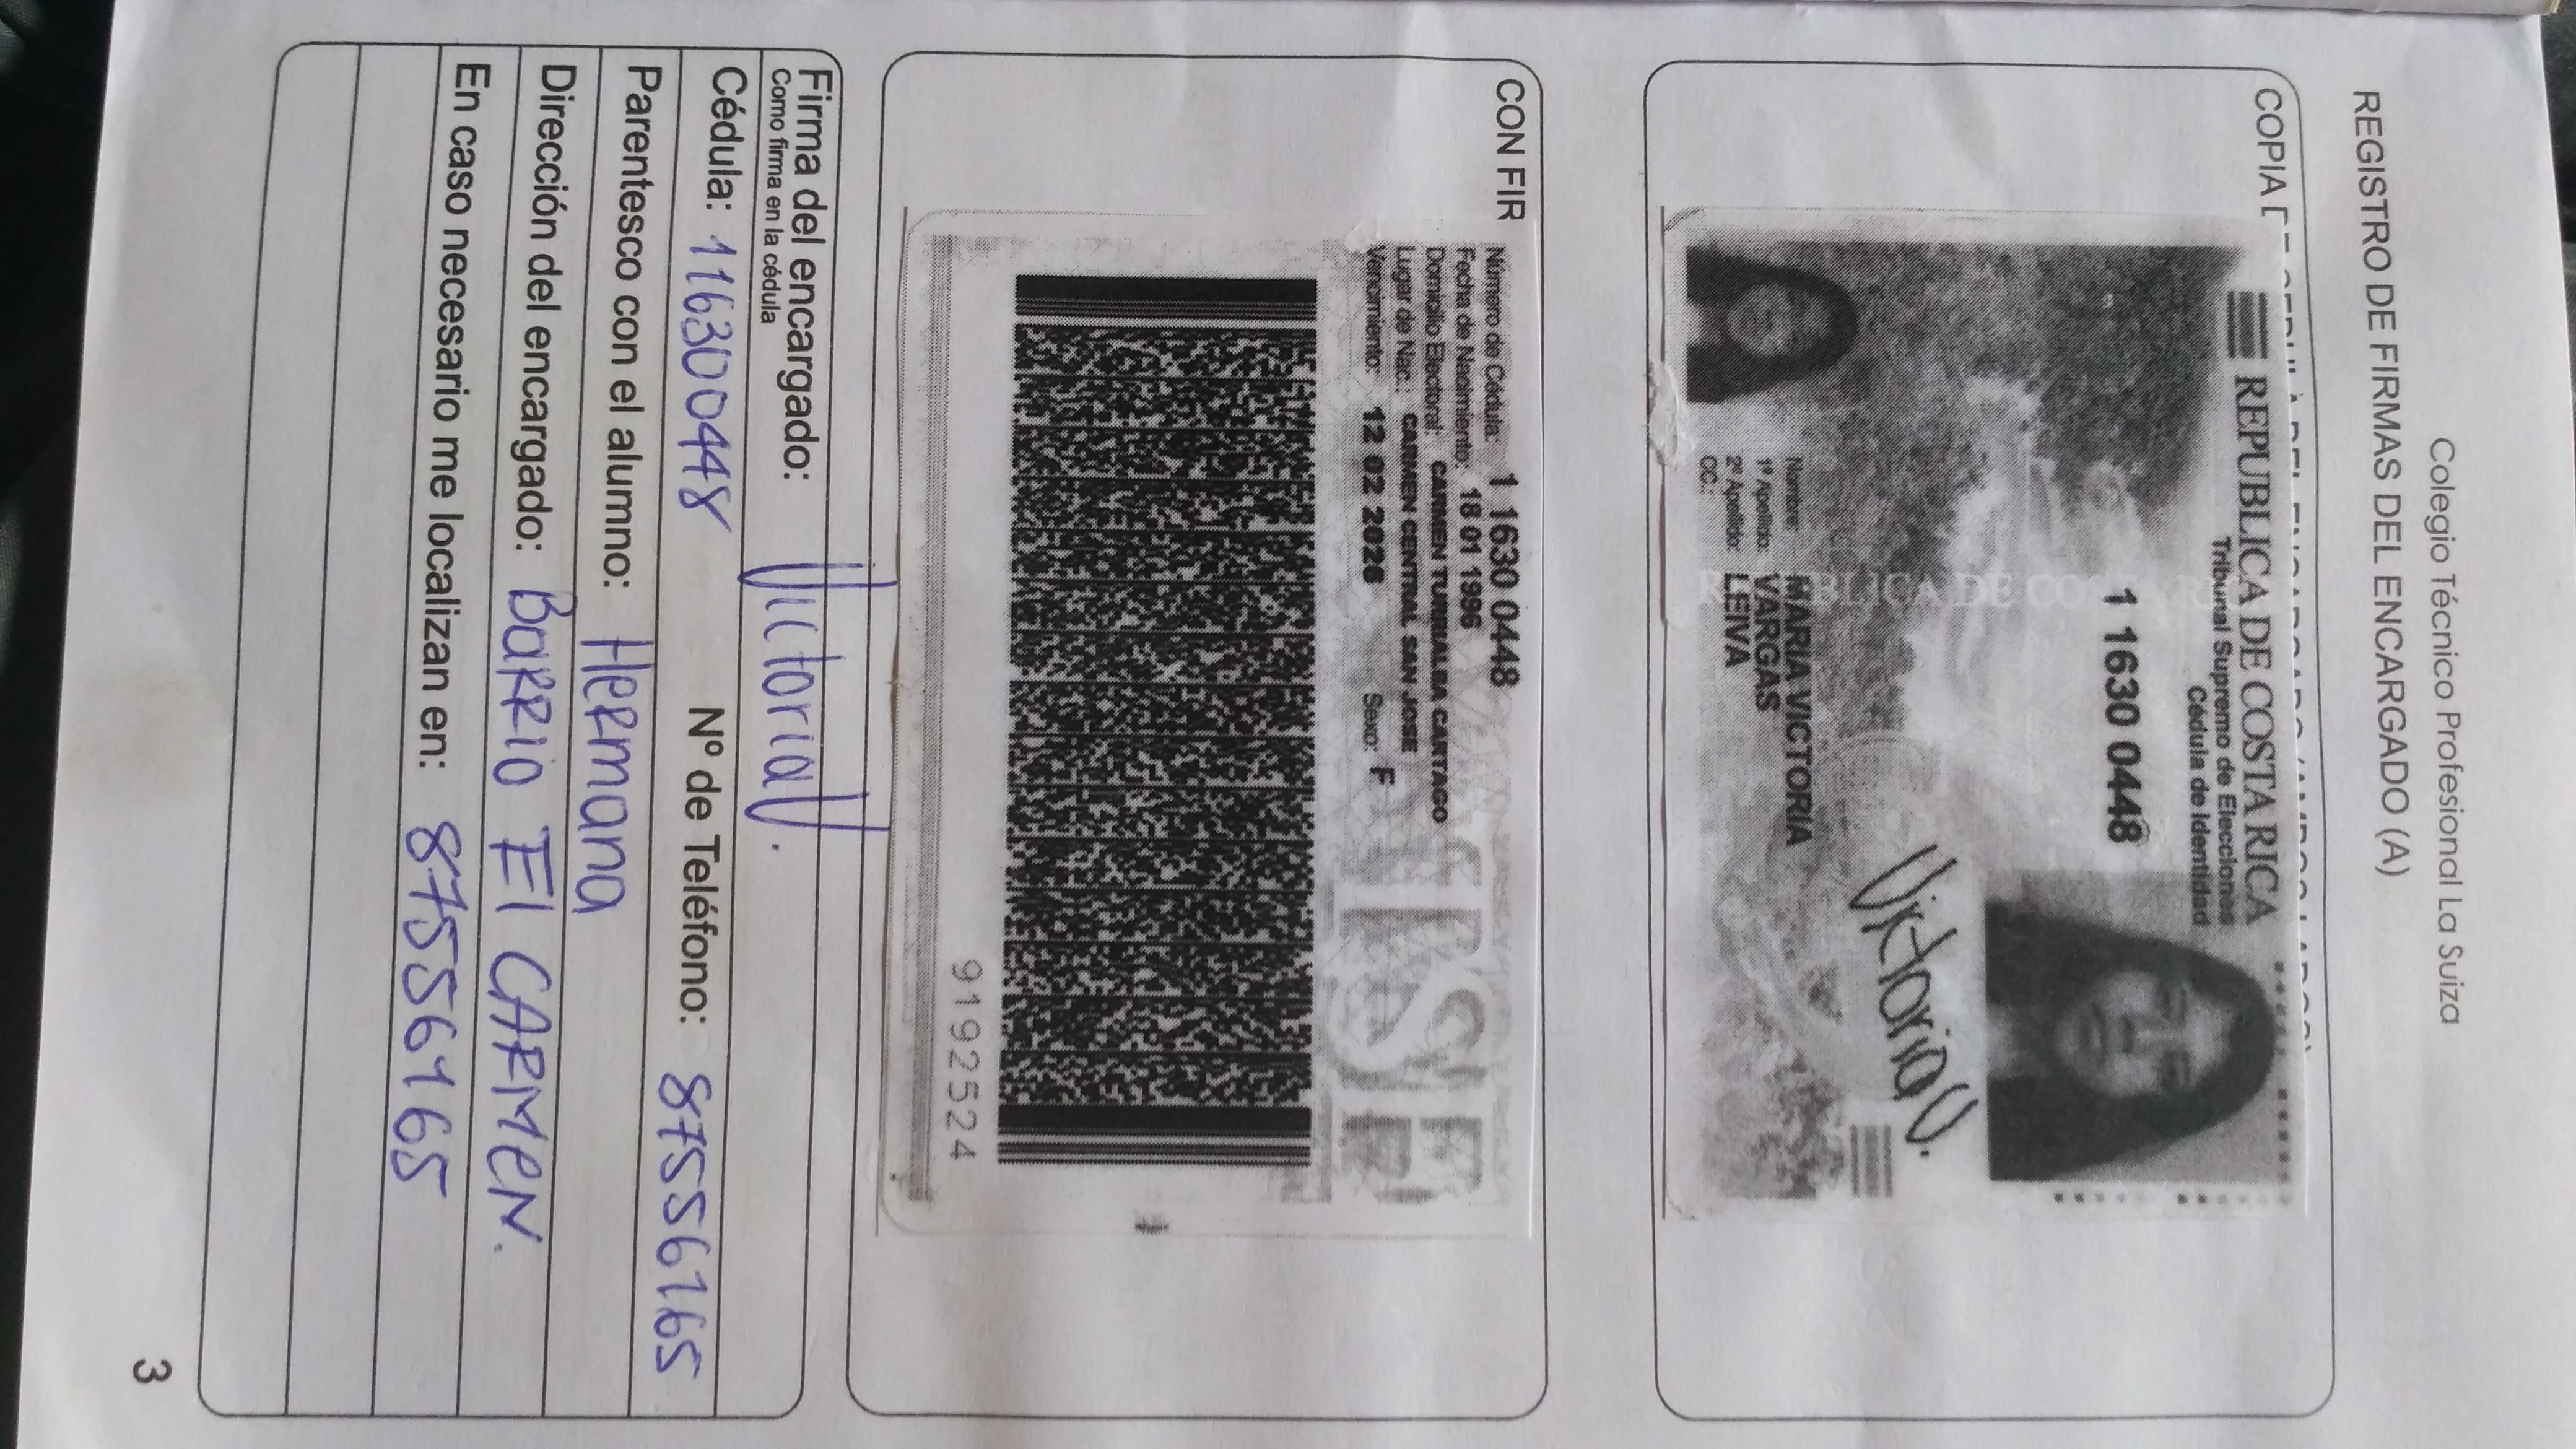 Colegio Técnico Profesional La Suiza
REGISTRO DE FIRMAS DEL ENCARGADO (A)
COPIA
REPUBLICA DE COSTA RICA
Tribunal Supremo de Elecciones
Cédula de Identidad
1 1630 0448
REPUBLICA DE COSTA RICA
VictoriaV.
Nombre: MARIA VICTORIA
1º Apellido: VARGAS
2º Apellido: LEIVA
CC.:
CON FIR
Número de Cédula: 1 1630 0448
Fecha de Nacimiento: 18 01 1996
Domicilio Electoral: CARMEN TURRIALBA CARTAGO
Lugar de Nac.: CARMEN CENTRAL SAN JOSE
Vencimiento: 12 02 2026 Sexo: F
TSE
9192524
Firma del encargado: VictoriaV.
Como firma en la cédula
Cédula: 116300448 Nº de Teléfono: 87556165
Parentesco con el alumno: Hermana
Dirección del encargado: Barrio El CARMEN.
En caso necesario me localizan en: 87556165
3